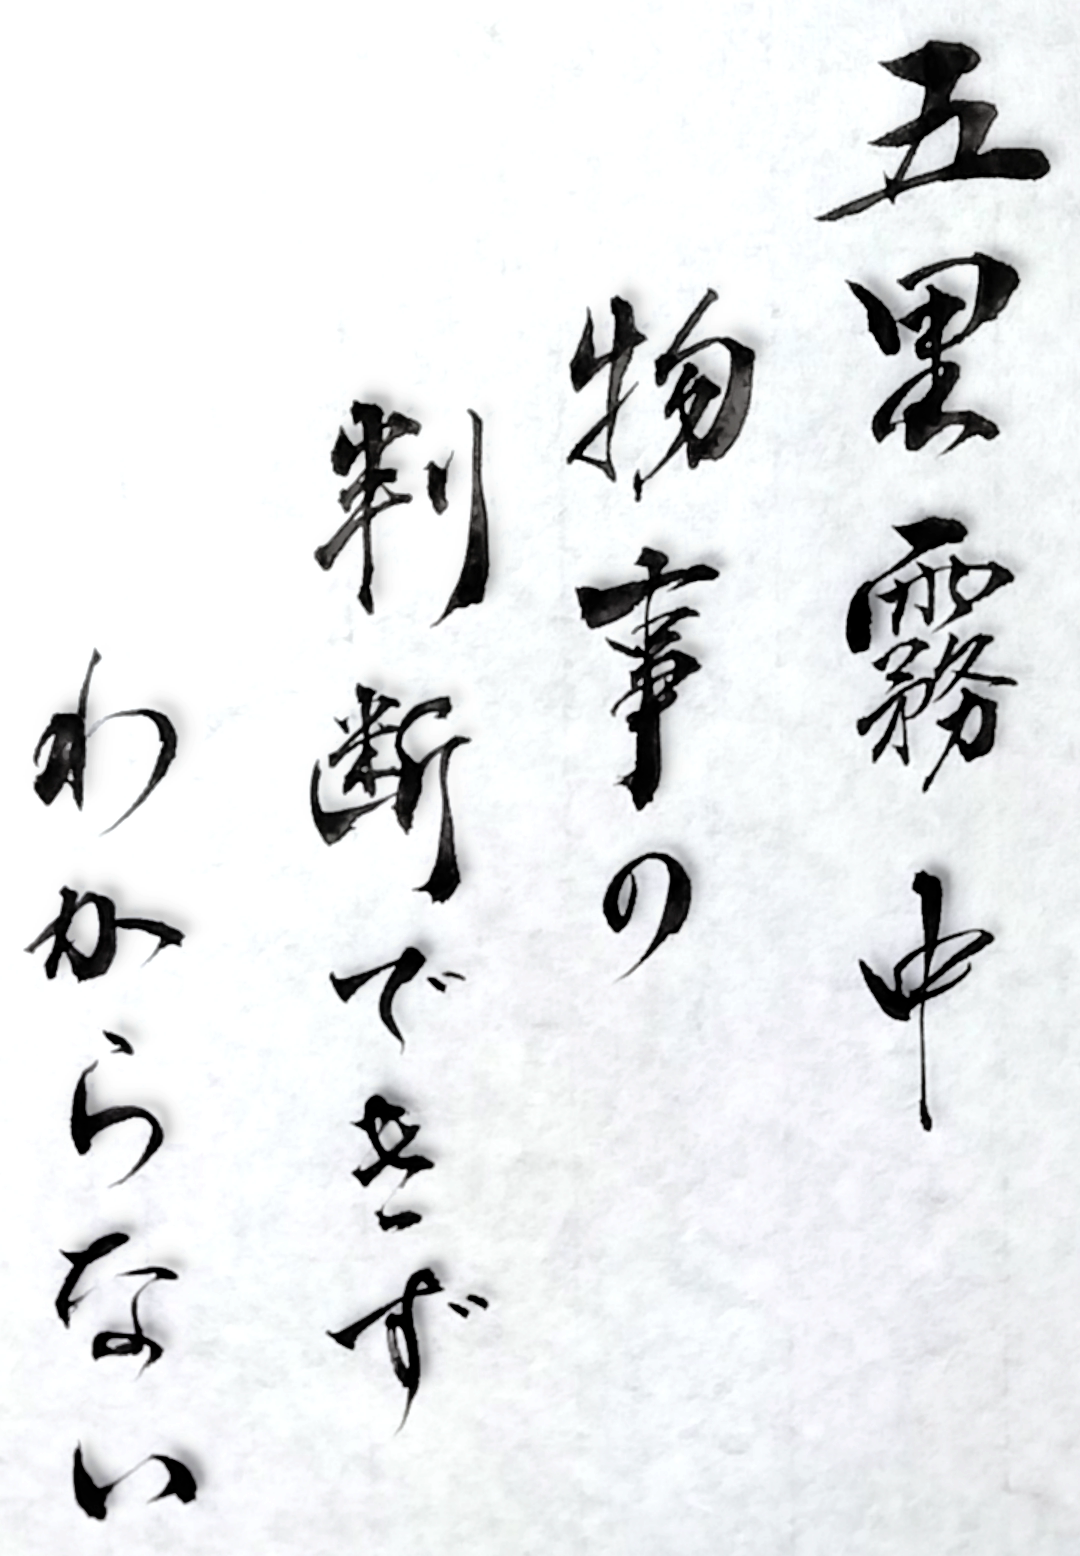 五里霧中
物事の
判断できず
わからない